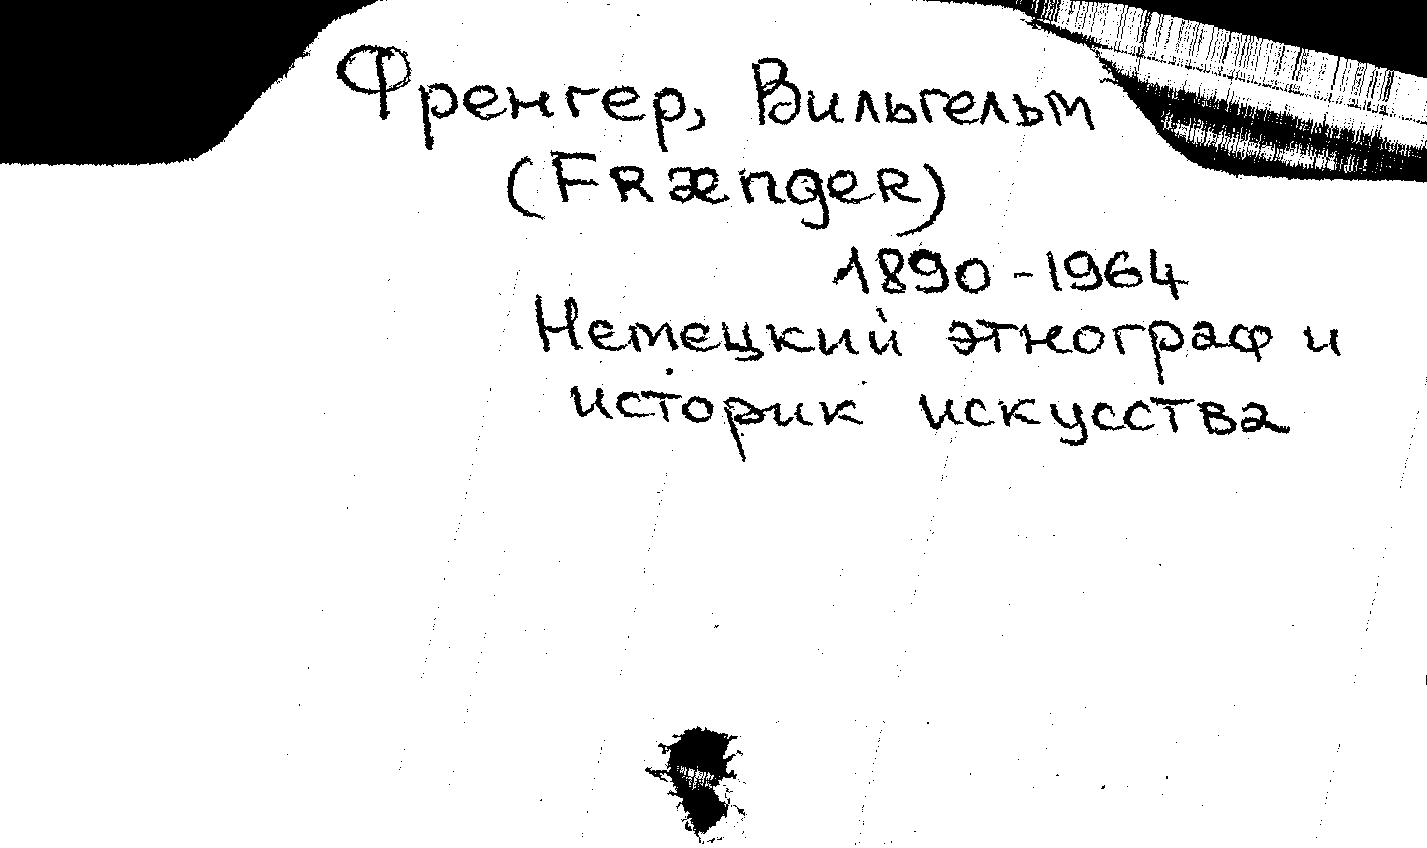 Френгер, Вильгельм
(Frænger)
1890-1964
Немецкий этнограф и
историк искусства